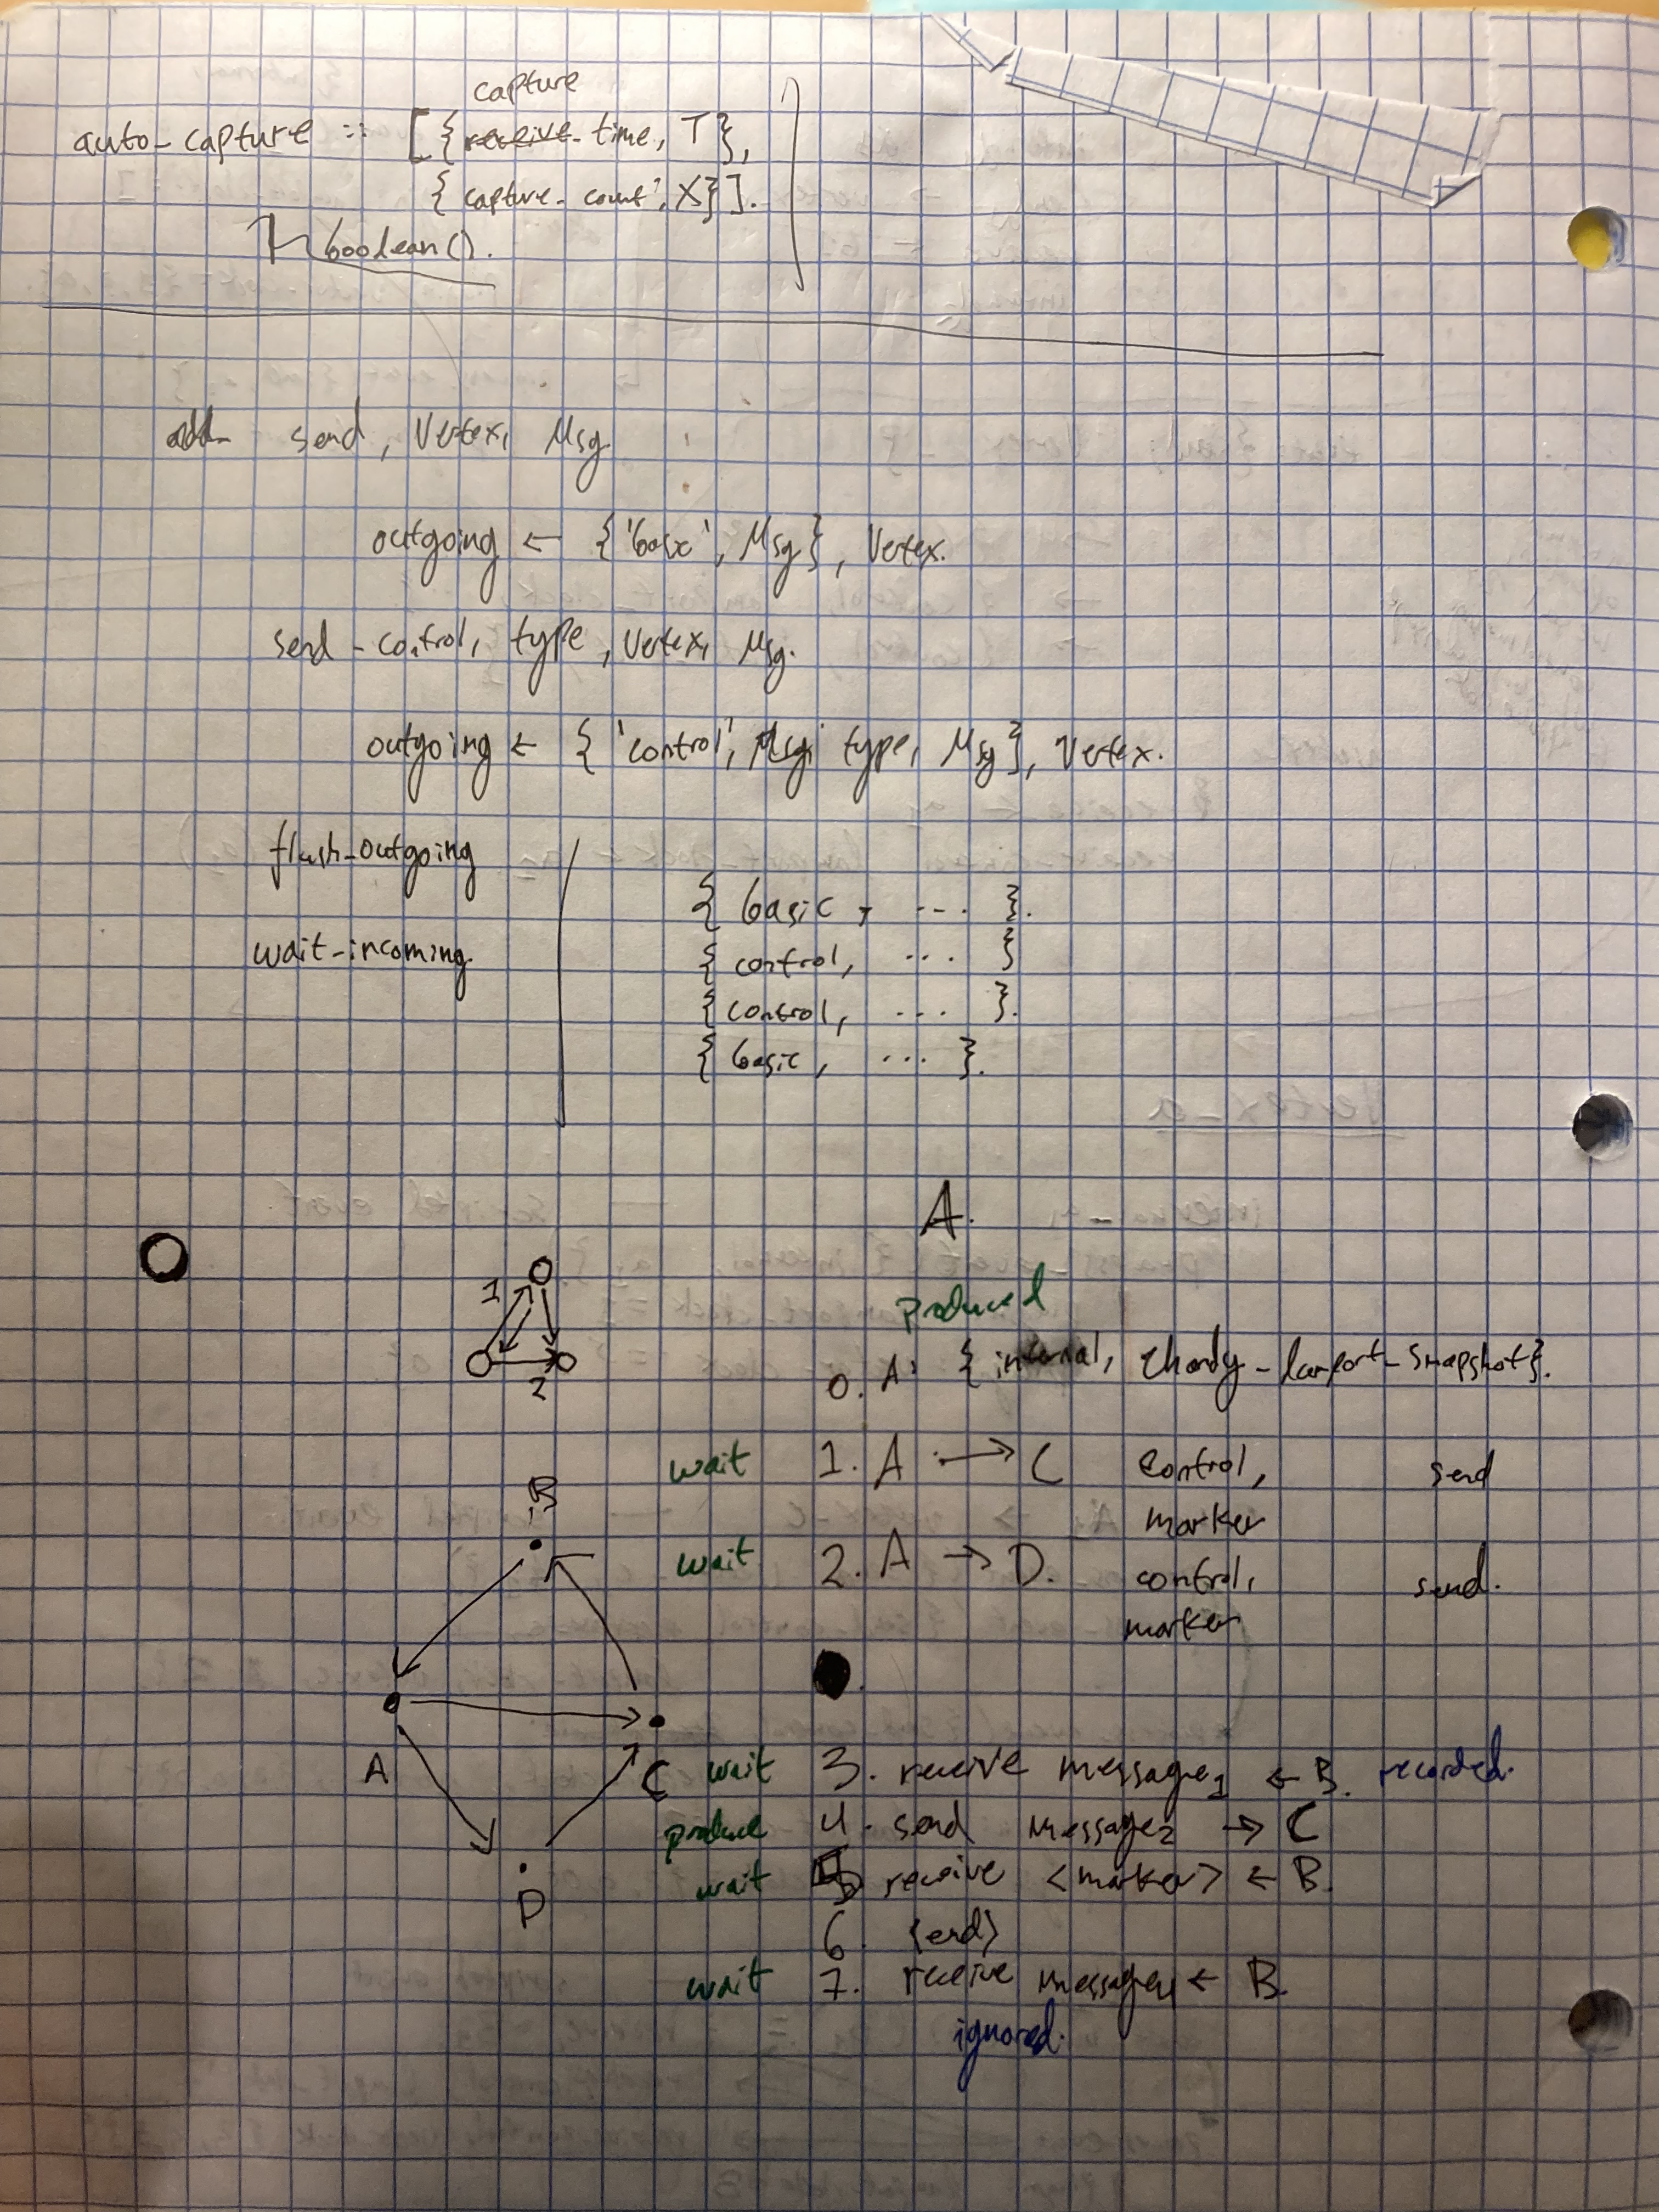 capture
auto-capture :: [{receive-time, T},
{capture-count, X}].
boolean().
add- send, Vertex, Msg
outgoing ← {'basic', Msg}, Vertex.
send-control, type, Vertex, Msg.
outgoing ← {'control', Msg, type, Msg}, Vertex.
flush-outgoing
wait-incoming.
{ basic, ... }.
{ control, ... }
{ control, ... }.
{ basic, ... }.
A.
1
2
produced
0. A: {internal, chandy-lamport-snapshot}.
wait 1. A → C control, send
marker
wait 2. A → D. control, send.
marker
B
A
C
D
wait 3. receive message1 ← B. recorded.
produce 4. send message2 → C
wait 5 receive <marker> ← B.
6. {end}
wait 7. receive message ← B.
ignored.